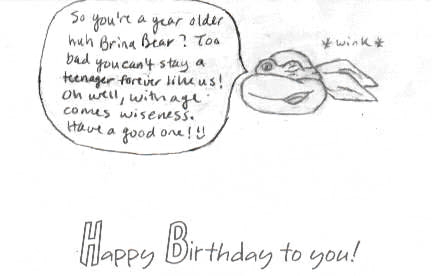 So you're a year older
huh Brina Bear? Too
bad you can't stay a
teenager forever like us!
Oh well, with age
comes wiseness.
Have a good one!
*wink*
Happy Birthday to you!